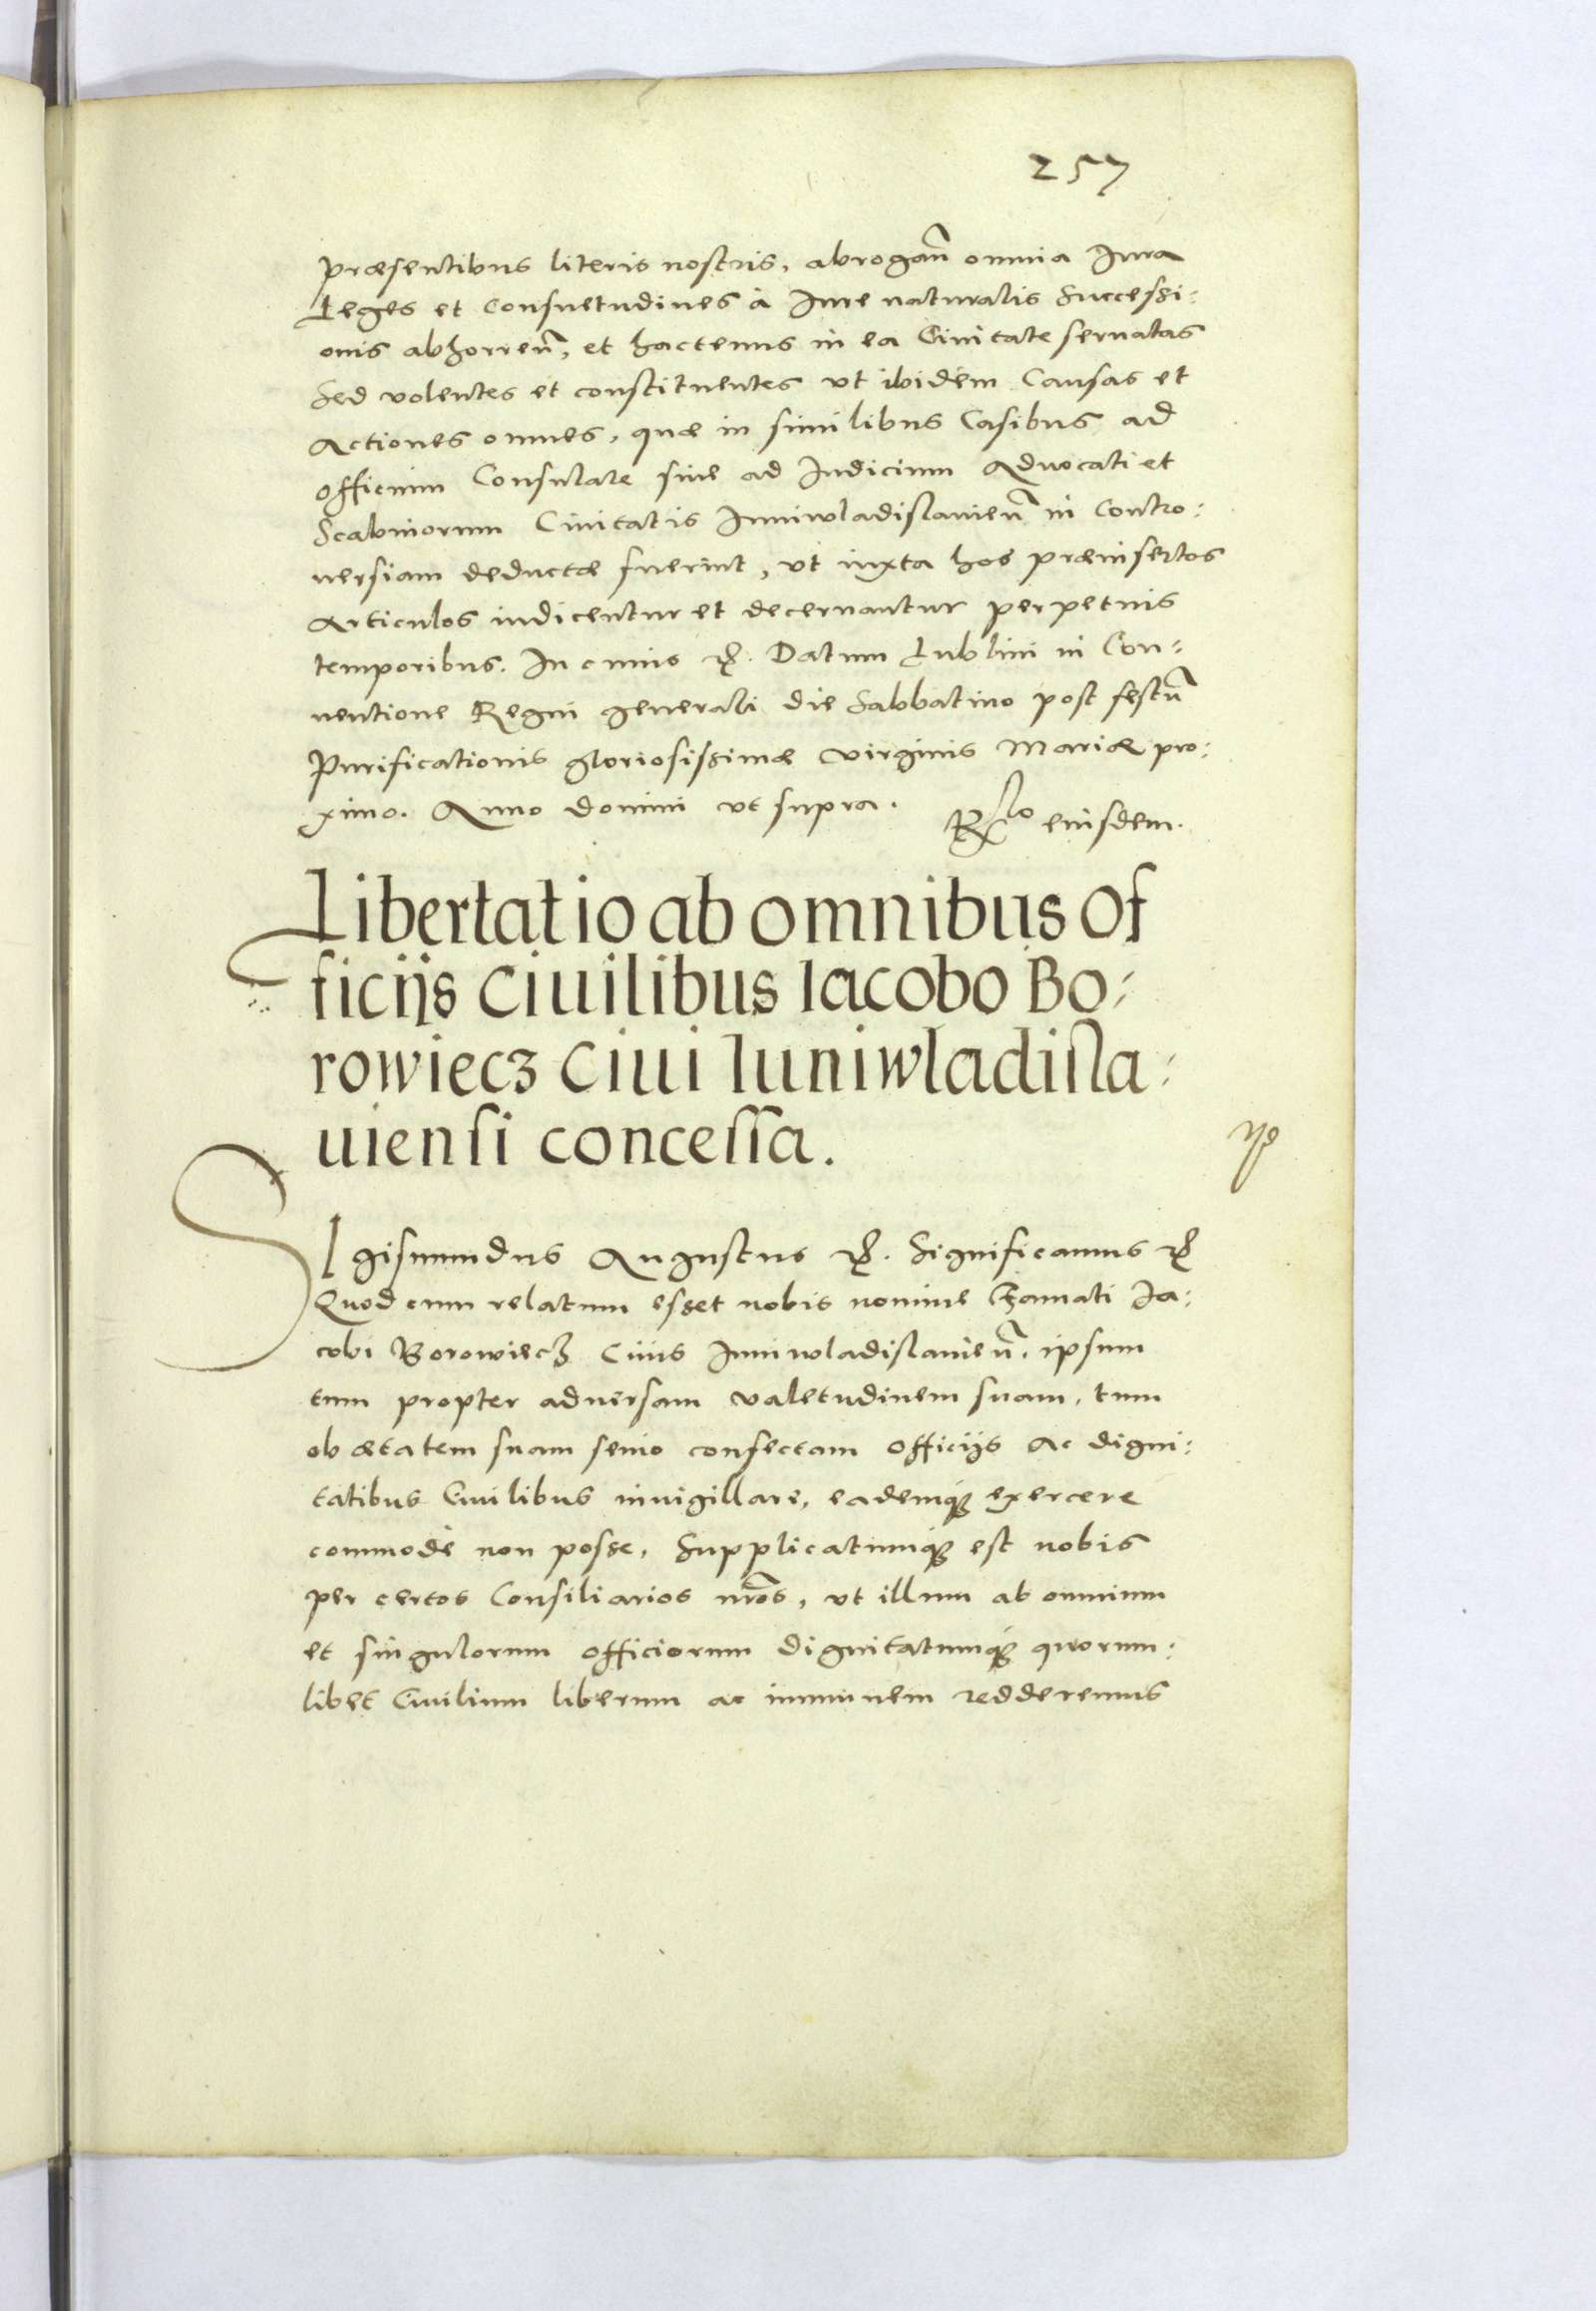 257
præsentibus literis nostris, abrogan̄ omnia Iura
Leges et Consuetudines à Iure naturalis Successi:
onis abhorren̄, et hactenus in ea Ciuitate seruatas
Sed volentes et constituentes vt ibidem Causas et
Actiones omnes, quæ in similibus Casibus ad
officium Consulare siue ad Iudicium Aduocati et
Scabinorum Ciuitatis Iuniwladislauien̄ in Contro:
uersiam deductæ fuerint, vt iuxta hos præinsertos
Articulos iudicentur et decernantur perpetuis
temporibus. In cuius &. Datum Lublini in Con:
uentione Regni generali die Sabbatino post festū
Purificationis gloriosissimæ virginis Mariæ pro:
ximo. Anno domini vt supra.
Rlo eiusdem.
Libertatio ab omnibus Of
ficijs Ciuilibus Iacobo Bo:
rowiecz Ciui Iuniwladisla:
uiensi concessa.
SIgismundus Augustus &. Significamus &
Quod cum relatum esset nobis nomine Famati Ia:
cobi Borowiecz Ciuis Iuniwladislauien̄. ipsum
tum propter aduersam valetudinem suam, tum
ob ætatem suam senio confectam officijs ac digni:
tatibus Ciuilibus inuigillare, eademq; exercere
commodè non posse, Supplicatumq; est nobis
per certos Consiliarios nr̄os, vt illum ab omnium
et singulorum officiorum dignitatumq; quorum:
libet Ciuilium liberum ac immunem redderemus